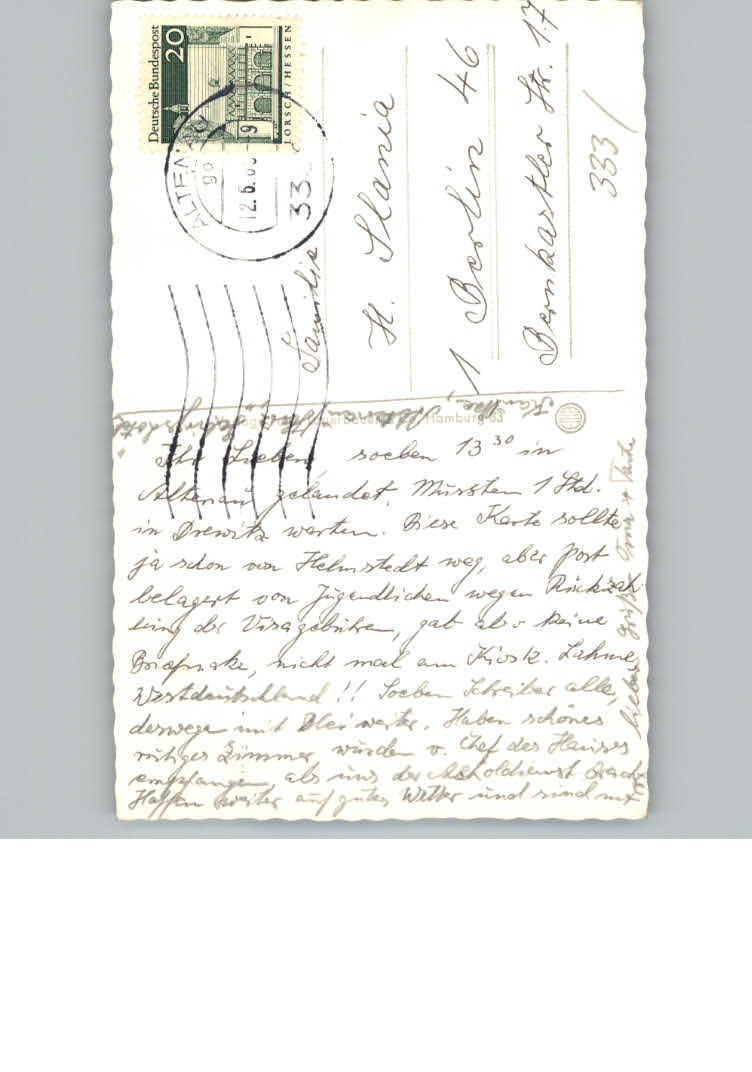 Deutsche Bundespost
20
LORSCH/HESSEN
ALTENAU
12.6.
9
33
Familie
H. Slania
1 Berlin 46
Bernkastler Str. 17
333/
Hamburg 63
Ihr Lieben, soeben 13 30 in
Altenau gelandet. Mussten 1 Std.
in Drewitz warten. Diese Karte sollte
ja schon von Helmstedt weg, aber Post
belagert von Jugendlichen wegen Rückzah
lung der Visagebühren, gab also keine
Briefmarke, nicht mal am Kiosk. Lahme
Westdeutschland!! Soeben Schreiber alle,
deswegen mit Blei weiter. Haben schönes
ruhiges Zimmer, wurden v. Chef des Hauses
empfangen als uns der Abholdienst brachte
Hoffen weiter auf gutes Wetter und sind mit
lieben Grüßen Oma +